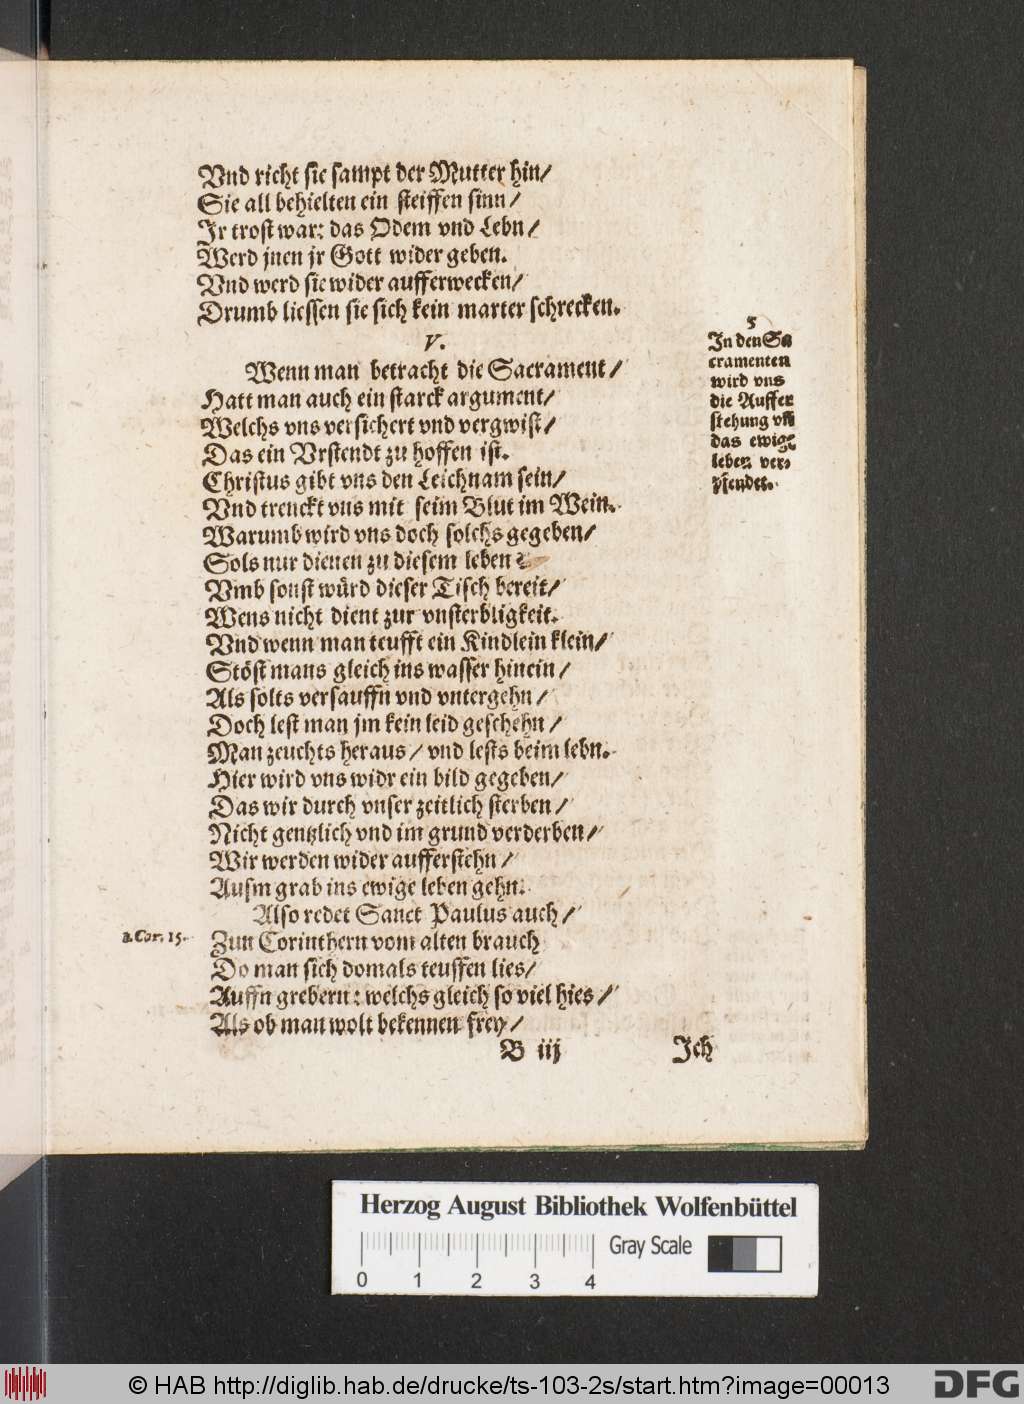 Vnd richt sie sampt der Mutter hin/
Sie all behielten ein steiffen sinn/
Jr trost war: das Odem vnd Lebn/
Werd jnen jr Gott wider geben.
Vnd werd sie wider aufferwecken/
Drumb liessen sie sich kein marter schrecken.
V.
Wenn man betracht die Sacrament/
Hatt man auch ein starck argument/
Welchs vns versichert vnd vergwist/
Das ein Vrstendt zu hoffen ist.
Christus gibt vns den Leichnam sein/
Vnd trenckt vns mit seim Blut im Wein.
Warumb wird vns doch solchs gegeben/
Sols nur dienen zu diesem leben?
Vmb sonst wůrd dieser Tisch bereit/
Wens nicht dient zur vnsterbligkeit.
Vnd wenn man teufft ein Kindlein klein/
Stöst mans gleich ins wasser hinein/
Als solts versauffn vnd vntergehn/
Doch lest man jm kein leid geschehn/
Man zeuchts heraus/ vnd lests beim lebn.
Hier wird vns widr ein bild gegeben/
Das wir durch vnser zeitlich sterben/
Nicht gentzlich vnd im grund verderben/
Wir werden wider aufferstehn/
Ausm grab ins ewige leben gehn.
Also redet Sanct Paulus auch/
Zun Corinthern vom alten brauch
Do man sich domals teuffen lies/
Auffn grebern: welchs gleich so viel hies/
Als ob man wolt bekennen frey/
B iij
Jch
5
In den Sa
cramenten
wird vns
die Auffer
stehung vñ
das ewige
leben ver-
pfendet.
1. Cor. 15.
Herzog August Bibliothek Wolfenbüttel
Gray Scale
0 1 2 3 4
© HAB http://diglib.hab.de/drucke/ts-103-2s/start.htm?image=00013
DFG